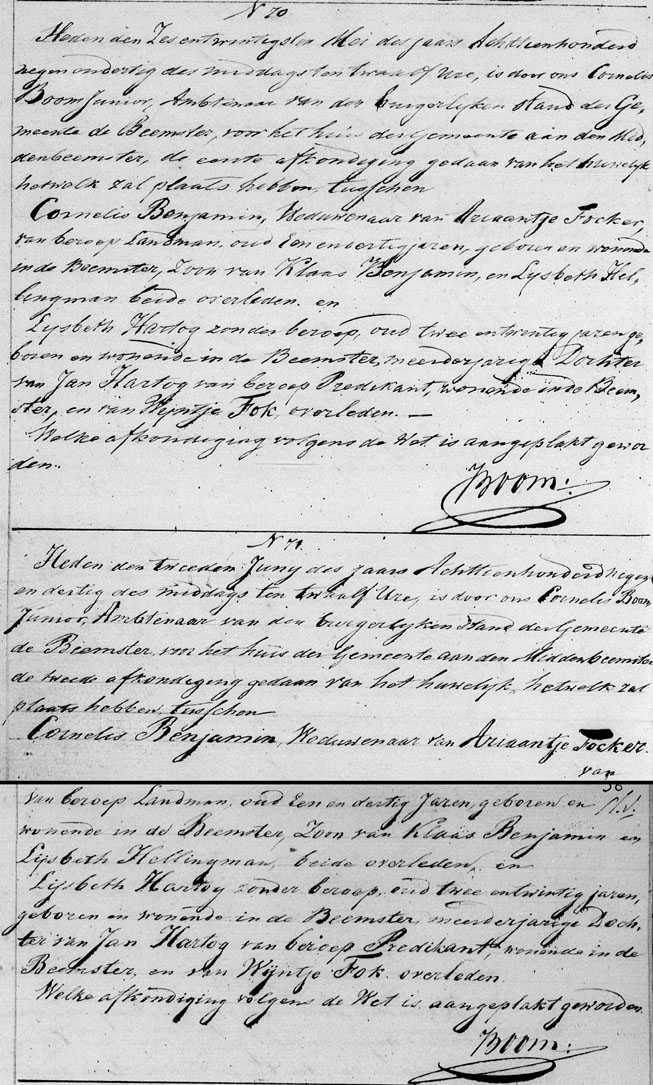 N 70
Heden den Zesentwintigsten Mei des jaars Achttienhonderd
negen ondertig des middags ten twaalf Ure, is door ons Cornelis
Boom Junior, Ambtenaar van den burgerlyken stand der Ge-
meente de Beemster, voor het huis der Gemeente aan den Mid,
denbeemster, de eerste afkondiging gedaan van het huwelyk
hetwelk zal plaats hebben, tusschen
Cornelis Benjamin, Weduwenaar van Ariaantje Focker,
van beroep Landman, oud Een en dertig jaren, geboren en wonende
in de Beemster, Zoon van Klaas Benjamin, en Lysbeth Hel-
lingman beide overleden. en
Lysbeth Hartog zonder beroep, oud twee entwintig jaren ge-
boren en wonende in de Beemster, meerderjarige Dochter
van Jan Hartog van beroep Predikant, wonende in de Beem,
ster, en van Wijntje Fok, overleden. —
Welke afkondiging volgens de Wet is aangeplakt gewor
den.
Boom.
N 71.
Heden den tweeden Juny des jaars Achttienhonderd negen
en dertig des middags ten twaalf Ure, is door ons Cornelis Boom
Junior, Ambtenaar van den burgerlyken Stand der Gemeente
de Beemster, voor het huis der Gemeente aan den Middenbeemster
de tweede afkondiging gedaan van het huwelijk, hetwelk zal
plaats hebben, tusschen
Cornelis Benjamin, Weduwenaar van Ariaantje Focker.
van
van beroep Landman, oud Een en dertig Jaren, geboren en
wonende in de Beemster, Zoon van Klaas Benjamin en
Lijsbeth Hellingman, beide overleden, en
Lijsbeth Hartog zonder beroep, oud twee entwintig jaren,
geboren en wonende in de Beemster, meerderjarige Doch,
ter van Jan Hartog van beroep Predikant, wonende in de
Beemster, en van Wijntje Fok overleden.
Welke afkondiging volgens de Wet is aangeplakt geworden.
Boom.